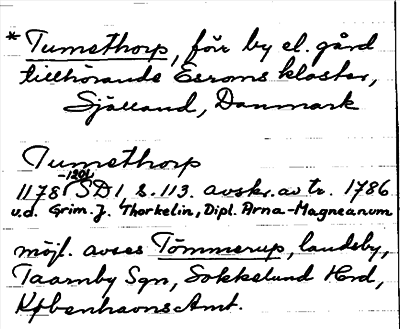 * Tumethorp, för by el. gård
tillhörande Esroms kloster,
Sjælland, Danmark
Tumethorp
1178-1201 SD 1, s. 113. avskr. av tr. 1786
u.d. Grim. J. Thorkelin, Dipl. Arna-Magneanum
möjl. avses Tömmerup, landsby,
Taarnby Sgn, Sokkelund Hrd,
Københavns Amt.